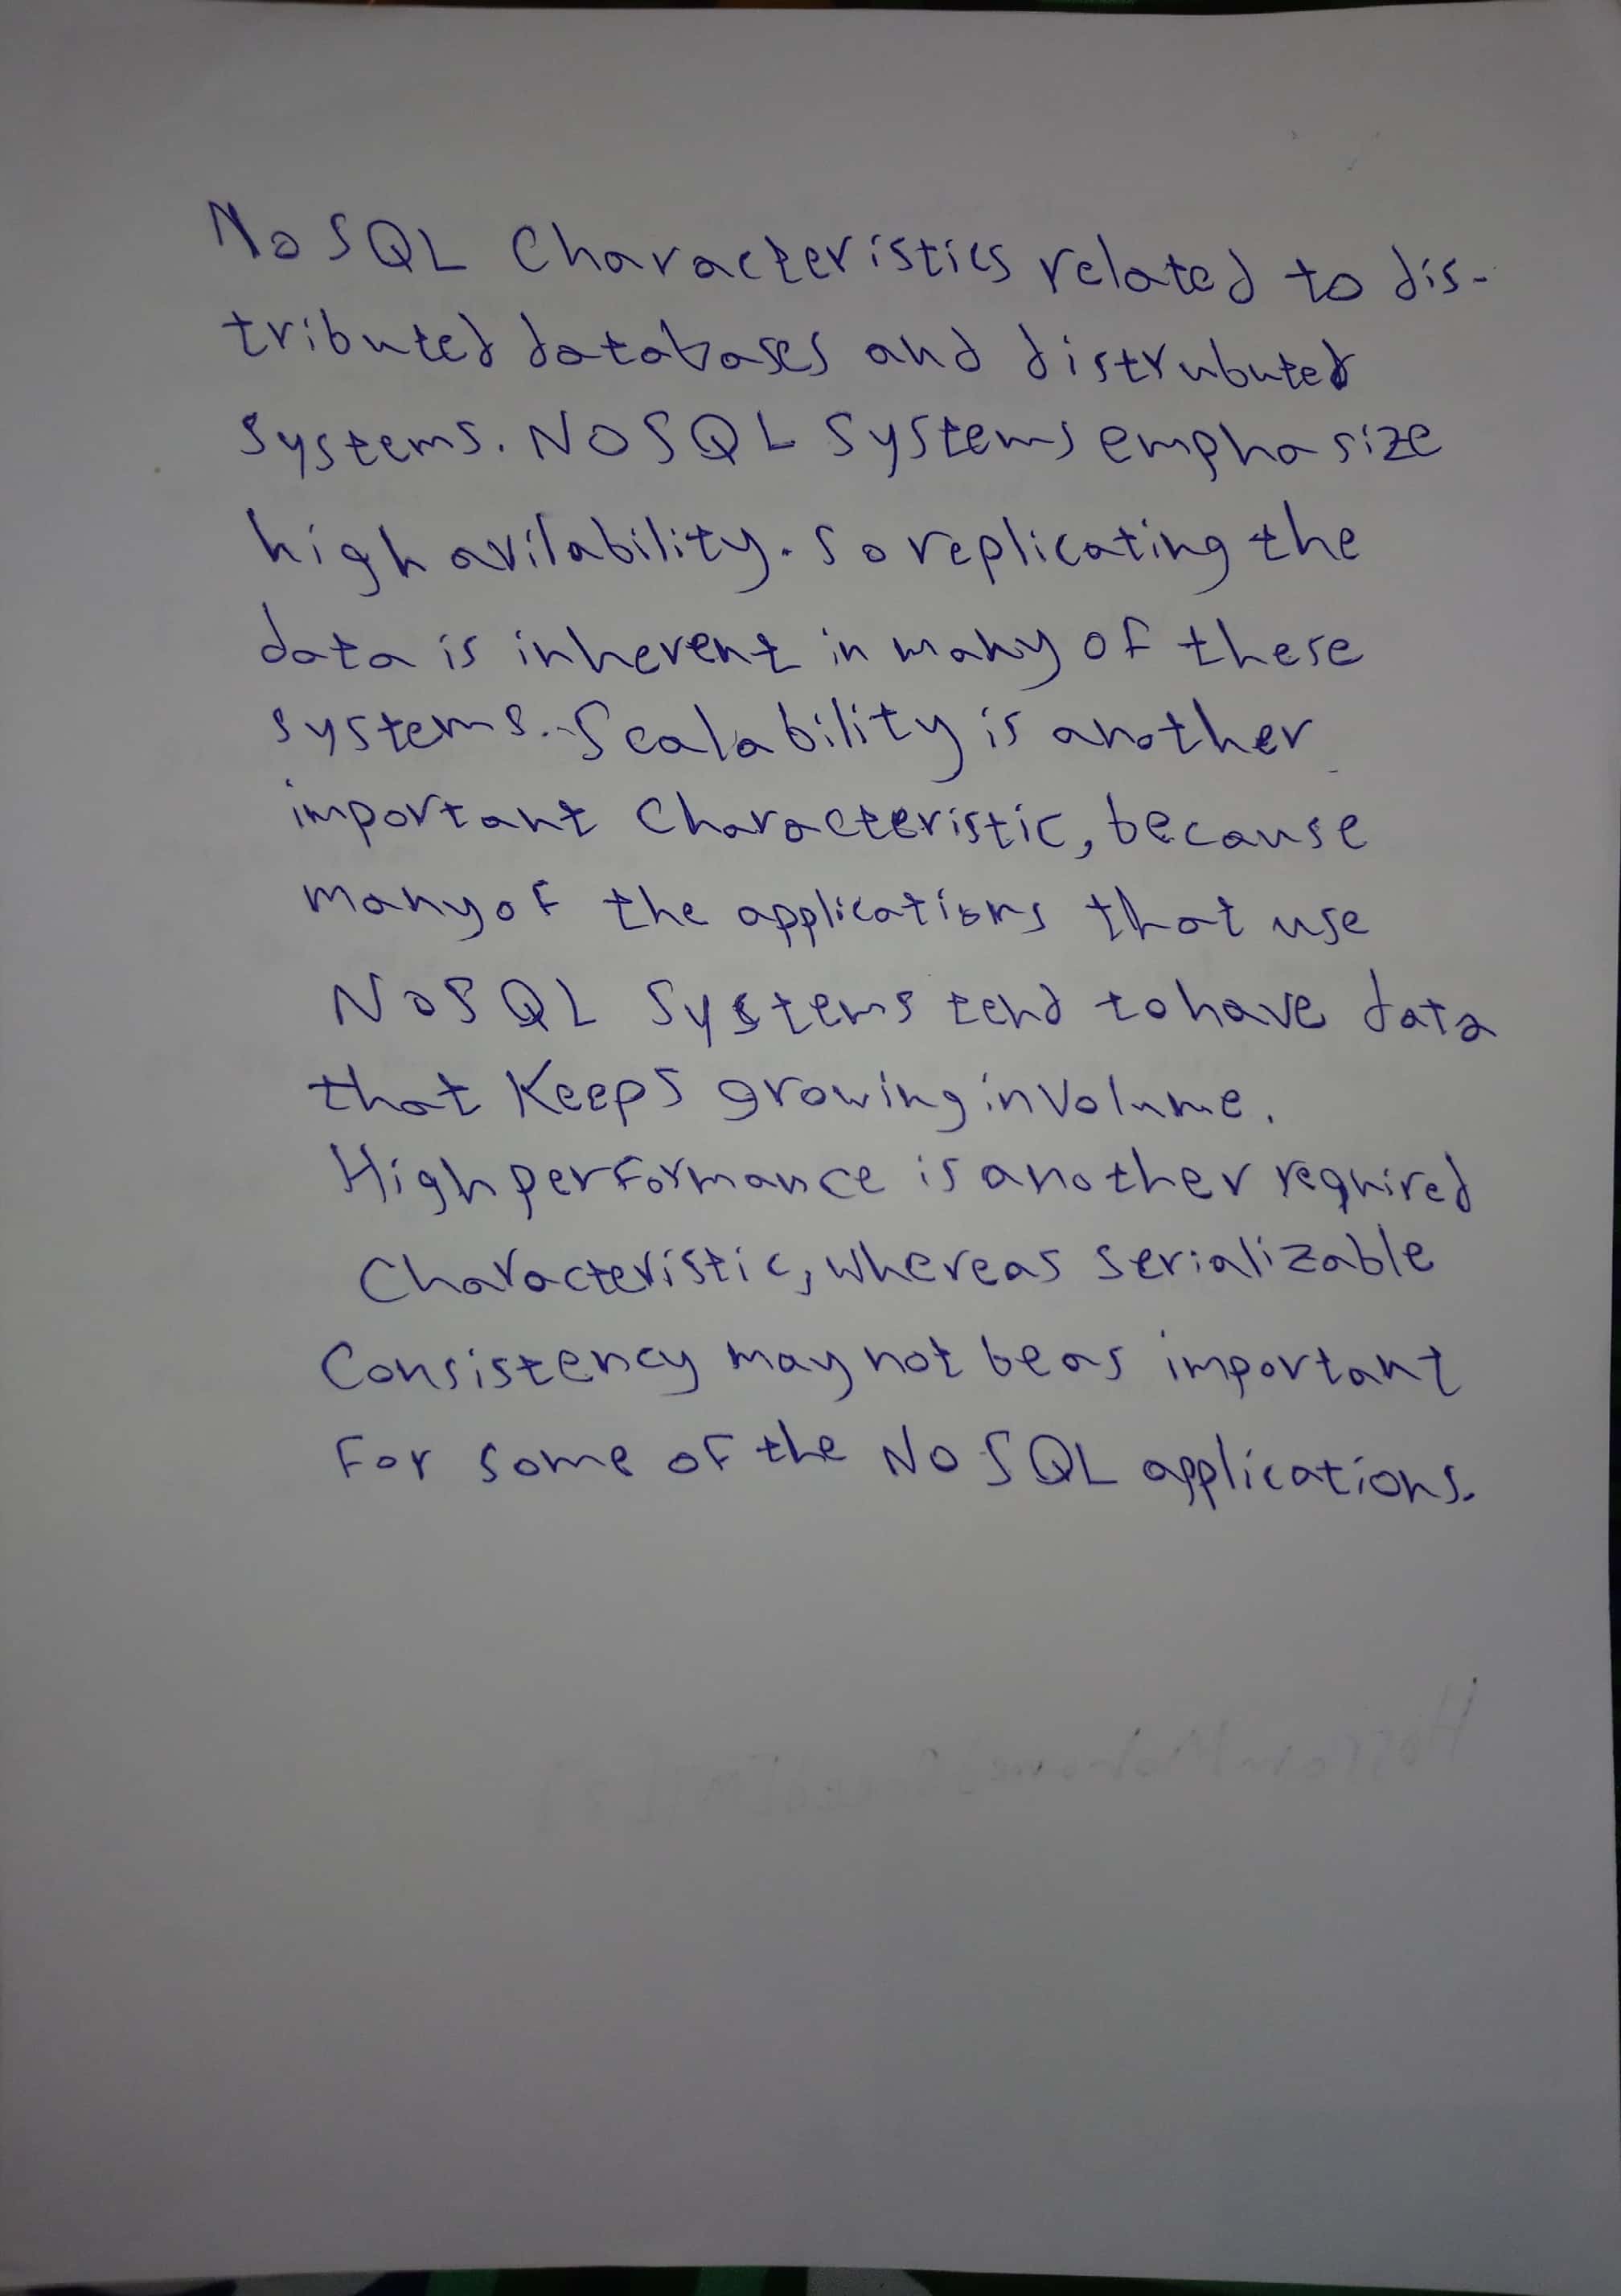 NoSQL Characteristics related to dis-
tributed databases and distrubuted
systems. NOSQL Systems emphasize
high avilability. So replicating the
data is inherent in many of these
systems. Scalability is another
important Characteristic, because
many of the applications that use
NoSQL Systems tend to have data
that Keeps growing in Volume.
High performance is another required
Characteristic, whereas serializable
Consistency may not be as important
For some of the NoSQL applications.